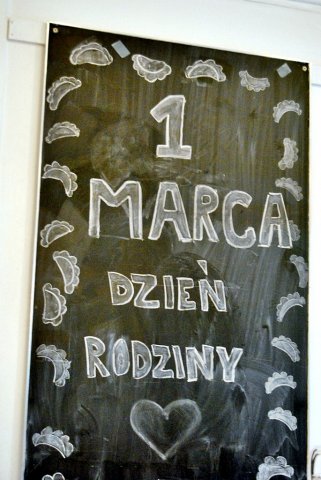 1
MARCA
DZIEŃ
RODZINY